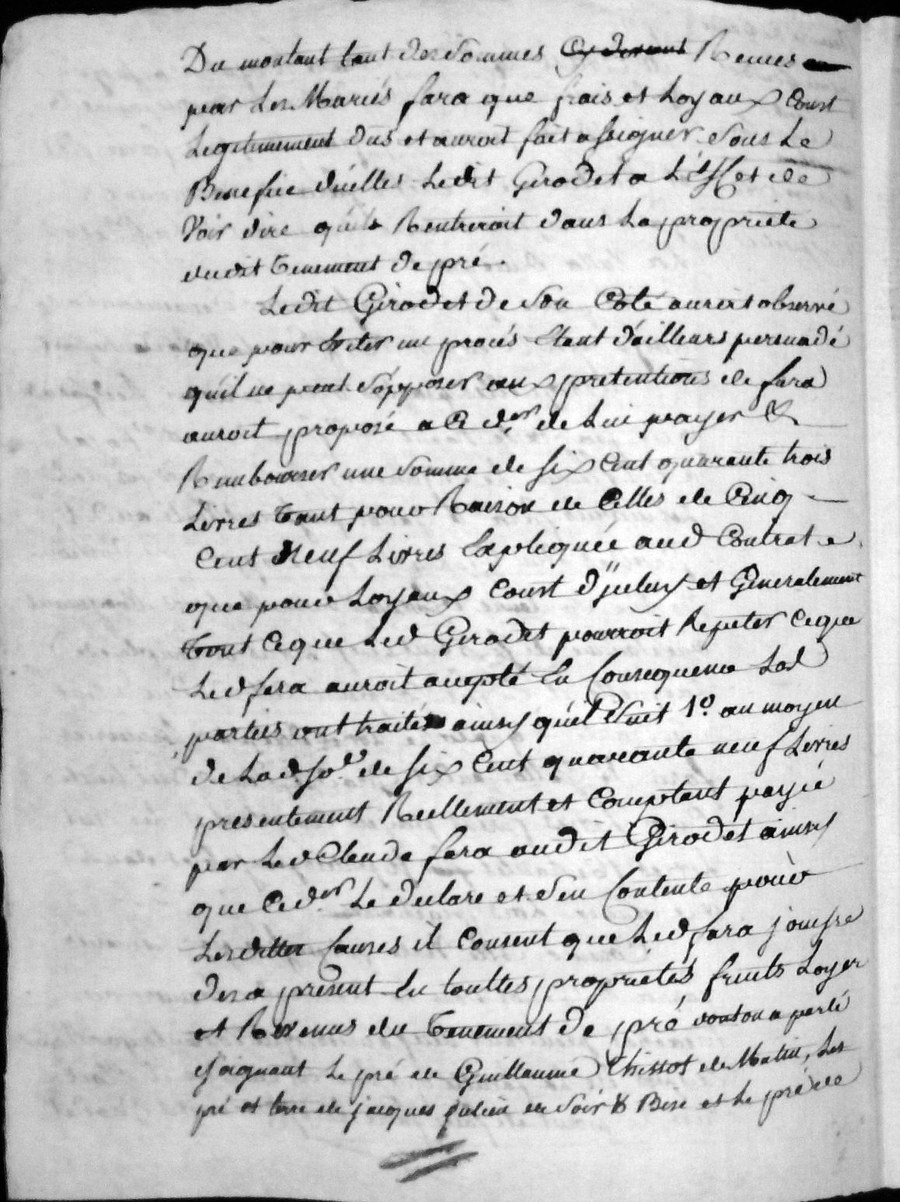 Du montant tant des sommes Reçues
par Les Mariés fara que frais et Loyaux Coust
Legitimement dus et auroit fait assigner Sous Le
Benefice d'icelles Ledit Girodet a L'effet de
Voir dire qu'il Rentreroit dans La propriete
dudit tenement de pré.
Ledit Girodet de Son Coté auroit observé
que pour Eviter un procés Etant d'ailleurs persuadé
qu'il ne peut S'opposer aux pretentions de fara
auroit proposé a Ce der de Lui payer &
Rembourser une Somme de Six Cent quarante trois
Livres tant pour Raison de Celles de Cinq
Cent Neuf Livres Expliquée aud Contrat
que pour Loyaux Coust d'iceluy et Generalement
tout Ce que Led Girodet pourroit Repeter Ce que
Led fara auroit accepté En Consequence Lesd
parties ont traités ainsy qu'il Suit 1o. au moyen
de Lad. So.e de Six Cent quarante neuf Livres
presentement Reellement et Comptant payée
par Led Claude fara audit Girodet ainsy
que Ced.er Le declare et S'en Contente pour
Lesdittes Causes il Consent que Led fara jouisse
des a present En touttes proprietés fruits Loyer
et Revenus du tenement de pré dont on a parlé
joignant Le pré de Guillaume Thissot de Matin, Les
pré et terre de jacques de Soir & Bise et Le pré de